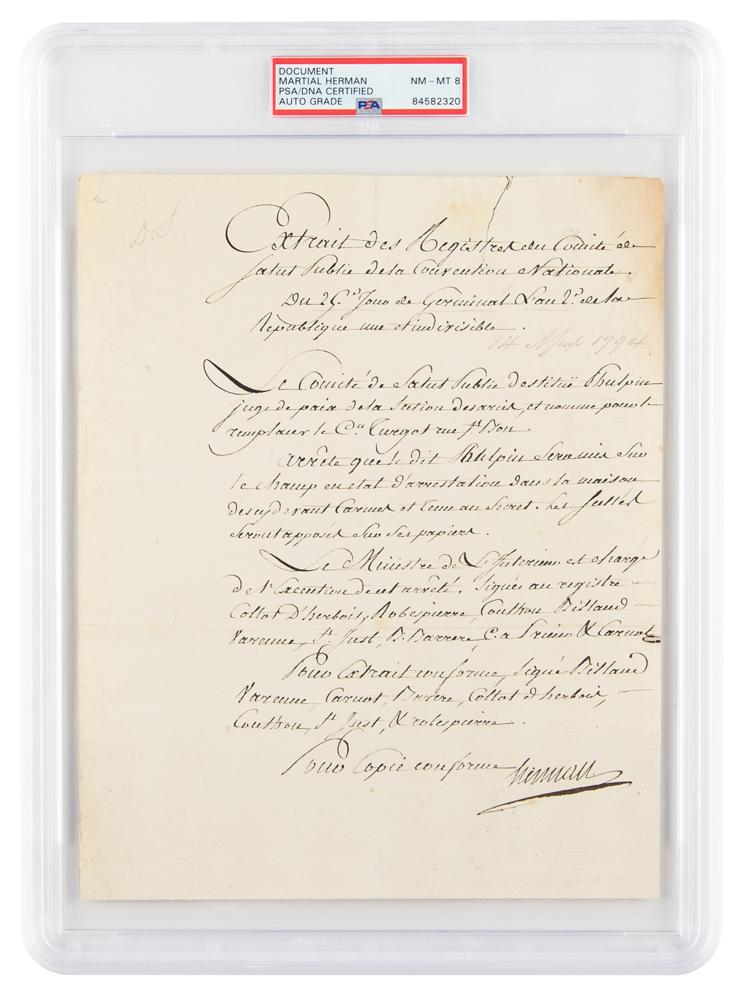 DOCUMENT
MARTIAL HERMAN NM – MT 8
PSA/DNA CERTIFIED
AUTO GRADE PSA 84582320
D.S.
Extrait des Registres du Comité de
Salut Public de la Convention Nationale.
Du 25.e Jour de Germinal L'an 2.e de la
République une et indivisible.
14 April 1794
Le Comité de Salut Public destitue Phulpin
juge de paix de la Section des arcis, et nomme pour le
remplacer le C.en Turgot rue St. Bon.
arrête que le dit Phulpin sera mis sur
le champ en etat d'arrestation dans la maison
des cy devant Carmes et tenu au Secret. les scellés
seront apposés sur ses papiers.
Le Ministre de L'Interieur est chargé
de l'execution de cet arrêté. Signés au registre
Collot D'herbois, Robespierre, Couthon Billaud
Varenne, St. Just, B. Barrere, C. a Prieur & Carnot
Pour Extrait conforme, Signé Billaud
Varenne, Carnot, Barere, Collot d'herbois,
Couthon, St. Just, & robespierre.
Pour Copie conforme herman